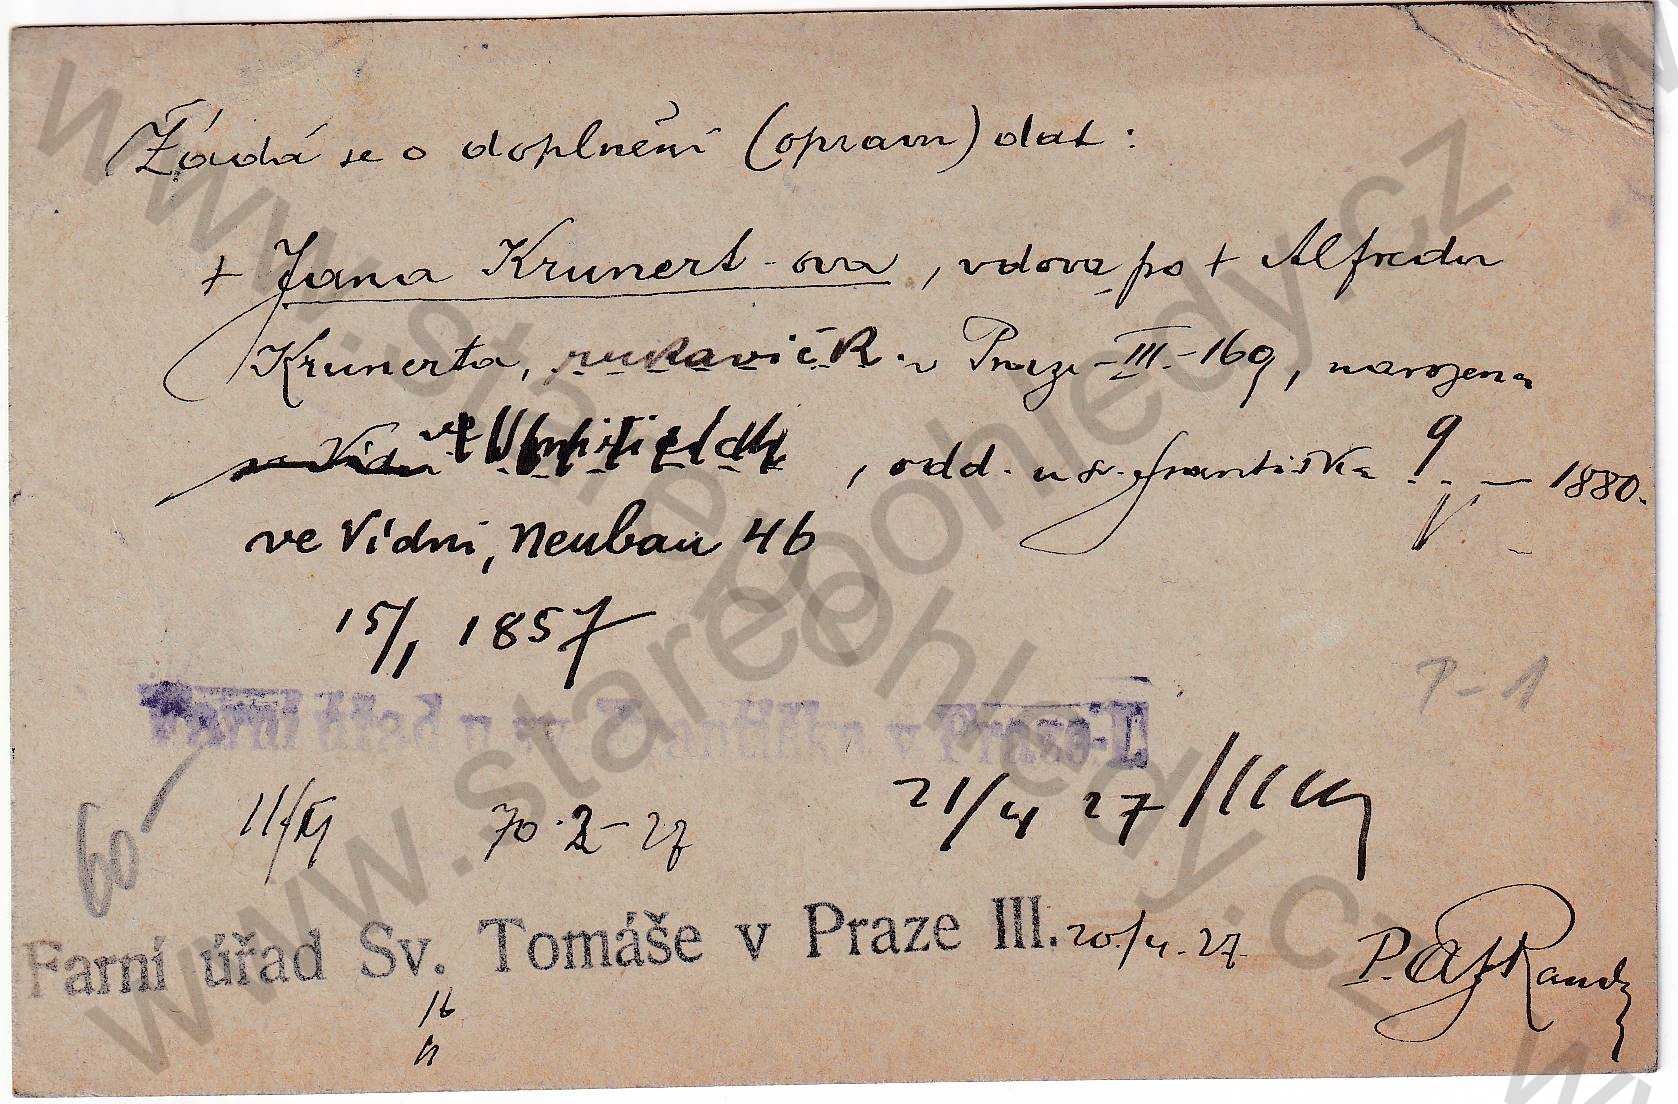 Žádá se o doplnění (opravu) dat:
+ Jana Krunert-ova, vdova po + Alfredu
Krunerta, rukavičk. v Praze-III.-169, narozena
, odd. u sv. Františka 9 - 1880.
ve Vídni, Neubau 46
15/1 1857
P-1
Farní úřad u sv. Františka v Praze-I.
60
11/IV 70.2-27
21/4 27
Farní úřad Sv. Tomáše v Praze III. 20/4.27
16
www.starepohledy.cz
www.starepohledy.cz